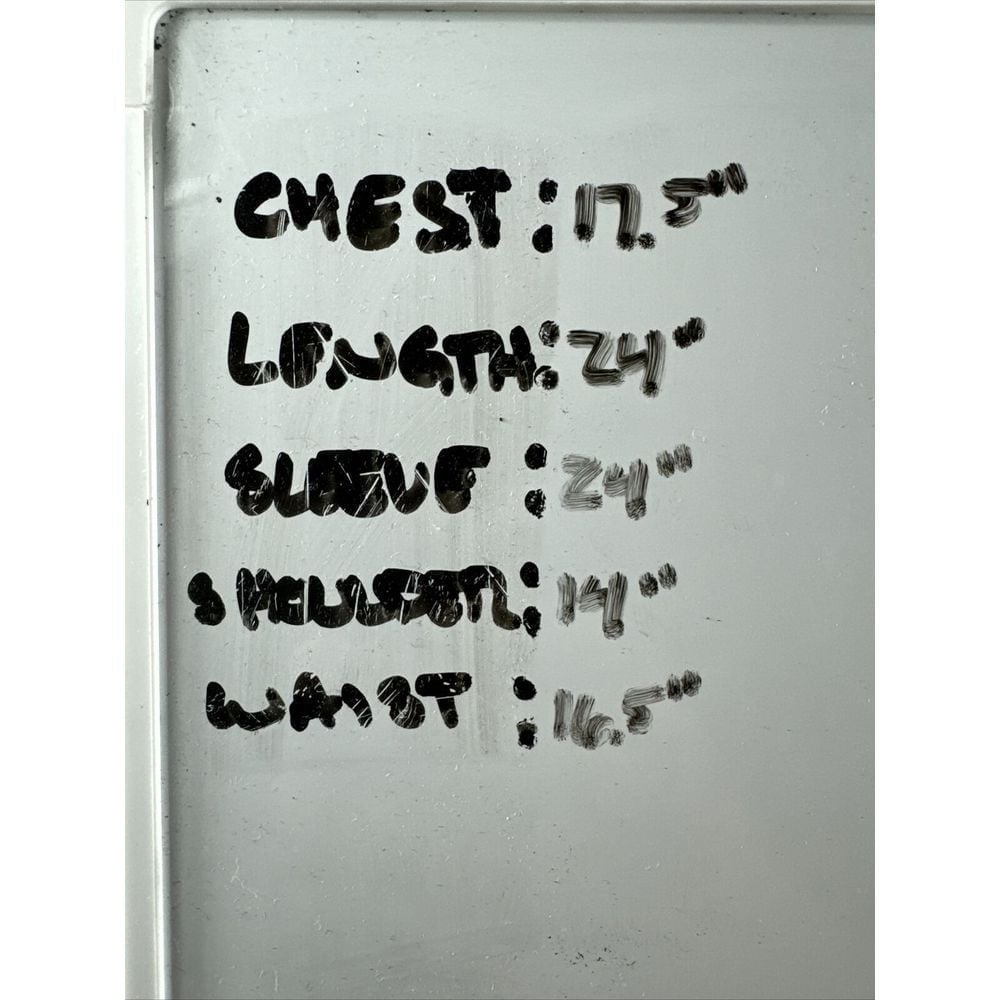 CHEST: 17.5"
LENGTH: 24"
SLEEVE: 24"
SHOULDER: 14"
WAIST: 16.5"